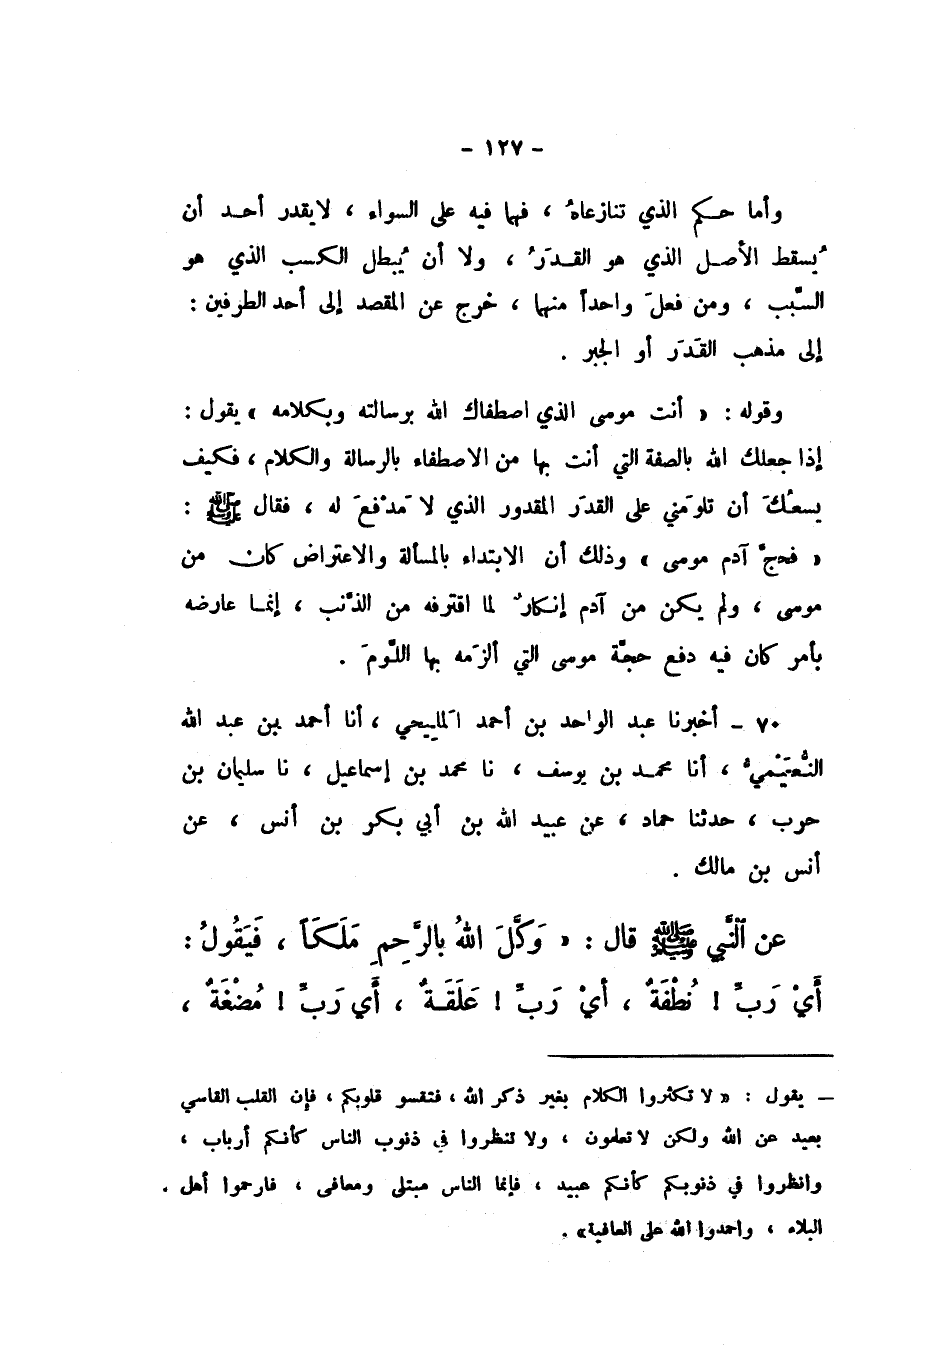 - ١٢٧ -
وأما حكم الذي تنازعاهُ ، فهما فيه على السواء ، لايقدر أحد أن
يُسقط الأصل الذي هو القدَرُ ، ولا أن يُبطل الكسب الذي هو
السَّبب ، ومن فعلَ واحداً منهما ، خرج عن المقصد إلى أحد الطرفين :
إلى مذهب القَدَر أو الجبر .
وقوله : « أنت موسى الذي اصطفاك الله برسالته وبكلامه » يقول :
إذا جعلك الله بالصفة التي أنت بها من الاصطفاء بالرسالة والكلام ، فكيف
يسعُكَ أن تلومَني على القدَر المقدور الذي لا مَدْفعَ له ، فقال ﷺ :
« فحجَّ آدم موسى » وذلك أن الابتداء بالمسألة والاعتراض كان من
موسى ، ولم يكن من آدم إنكارٌ لما اقترفه من الذَّنب ، إنما عارضه
بأمر كان فيه دفع حجَّة موسى التي ألزَمه بها اللَّومَ .
٧٠ - أخبرنا عبد الواحد بن أحمد المَليحي ، أنا أحمد بن عبد الله
النُّعَيْميُّ ، أنا محمد بن يوسف ، نا محمد بن إسماعيل ، نا سليمان بن
حرب ، حدثنا حماد ، عن عبيد الله بن أبي بكر بن أنس ، عن
أنس بن مالك .
عن النَّبي ﷺ قال : « وَكَّلَ اللهُ بالرَّحِمِ مَلَكَاً ، فَيَقُولُ :
أَيْ رَبِّ ! نُطْفَةٌ ، أيْ رَبِّ ! عَلَقَةٌ ، أَي رَبِّ ! مُضْغَةٌ ،
- يقول : « لا تكثروا الكلام بغير ذكر الله ، فتقسو قلوبكم ، فإن القلب القاسي
بعيد عن الله ولكن لا تعلمون ، ولا تنظروا في ذنوب الناس كأنكم أرباب ،
وانظروا في ذنوبكم كأنكم عبيد ، فإنما الناس مبتلى ومعافى ، فارحموا أهل .
البلاء ، واحمدوا الله على العافية» .